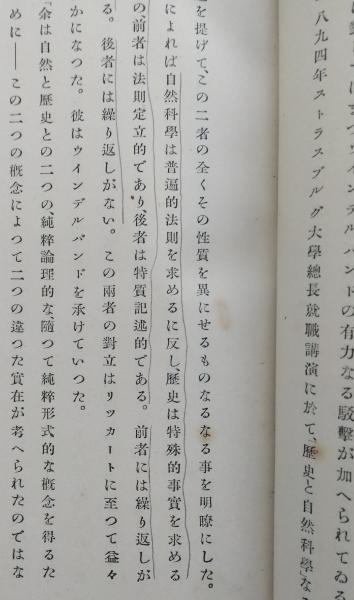 はウインデルバンドの有力なる駁擊が加へられてゐる
八九四年ストラスブルグ大學總長就職講演に於て、歷史と自然科學な
を提げて、この二者の全くその性質を異にせるものなる事を明瞭にした。
によれば自然科學は普遍的法則を求めるに反し、歷史は特殊的事實を求める
の、前者は法則定立的であり、後者は特質記述的である。前者には繰り返しが
る。後者には繰り返しがない。この兩者の對立はリツカートに至つて益々
かになつた。彼はウインデルバンドを承けていつた。
「余は自然と歷史との二つの、純粹論理的な、隨つて純粹形式的な槪念を得るた
めに――この二つの槪念によつて二つの違つた實在が考へられたのではな